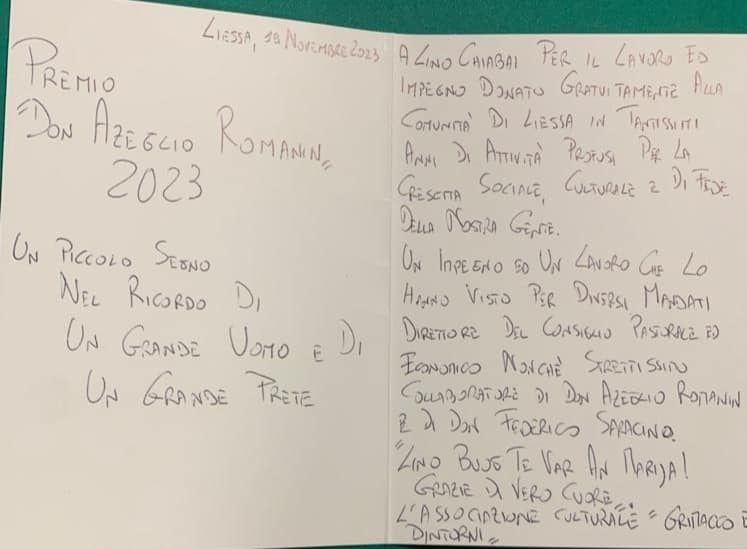 Liessa, 18 Novembre 2023
Premio
"Don Azeglio Romanin"
2023
Un Piccolo Segno
Nel Ricordo Di
Un Grande Uomo e Di
Un Grande Prete
A Lino Caiabai Per il Lavoro ed
Impegno Donato Gratuitamente Alla
Comunità Di Liessa in Tantissimi
Anni Di Attività Profusi Per La
Crescita Sociale, Culturale e Di Fede
Della Nostra Gente.
Un Impegno ed Un Lavoro Che Lo
Hanno Visto Per Diversi Mandati
Direttore Del Consiglio Pastorale ed
Economico Nonchè Strettissimo
Collaboratore Di Don Azeglio Romanin
e Di Don Federico Saracino.
"Lino Buog Te Var An Marija!
Grazie Di Vero Cuore"
L'Associazione Culturale "Grimacco e
Dintorni"